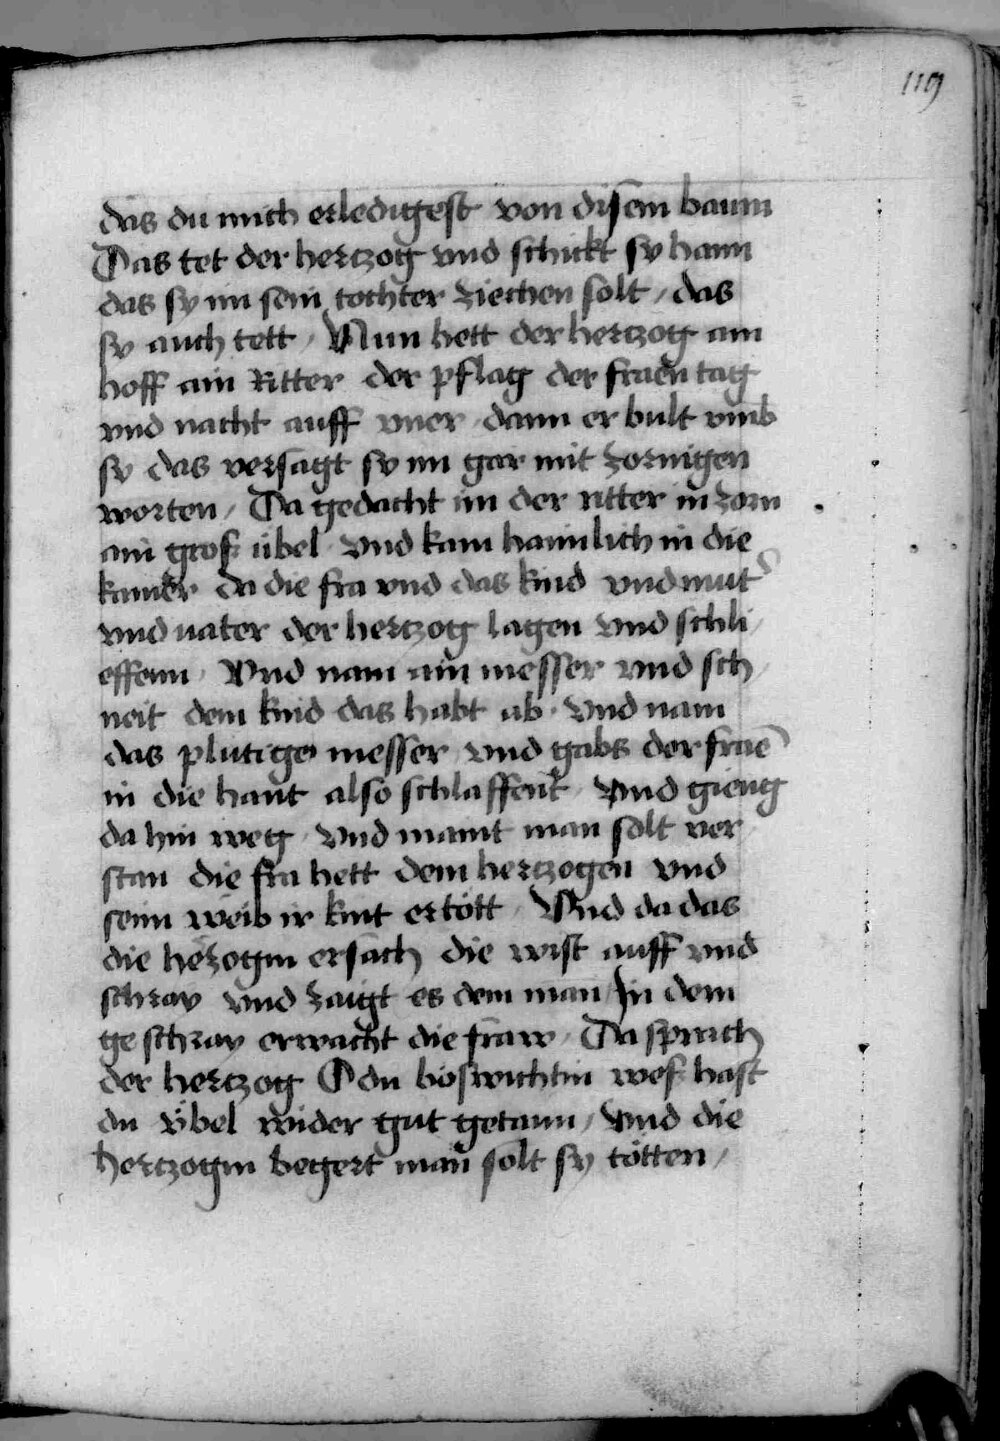 119
das du mich erledigest von disem baum
Das tet der hertzog vnd schickt sy haim
das sy im sein tochter ziechen solt / das
sy auch tett / Nun hett der hertzog am
hoff ain Ritter der pflag der fraen tag
vnd nacht auff vner dann er bult vmb
sy das versagt sy im gar mit zornigen
worten / Da gedacht im der ritter in zorn
ain groß übel vnd kam haimlich in die
kamer da die fra vnd das kind vnd mut
vnd vater der hertzog lagen vnd schli /
effenn / Vnd nam ain messer vnd sch /
neit dem kind das habt ab · vnd nam
das plutige messer vnd gabs der fraē
in die hant also schlaffent / vnd gieng
da hin weg / vnd maint man solt ver /
stan die fra hett dem hertzogen vnd
seim weib ir kint ertött / Vnd da das
die hetzogin ersach die wist auff vnd
schray vnd zaigt es dem man / In dem
ge schray erwacht die fraw / Da sprach
der hertzog O du böswichtin weß hast
du v̈bel wider gut getann / vnd die
hertzogin begert man solt sy tötten /